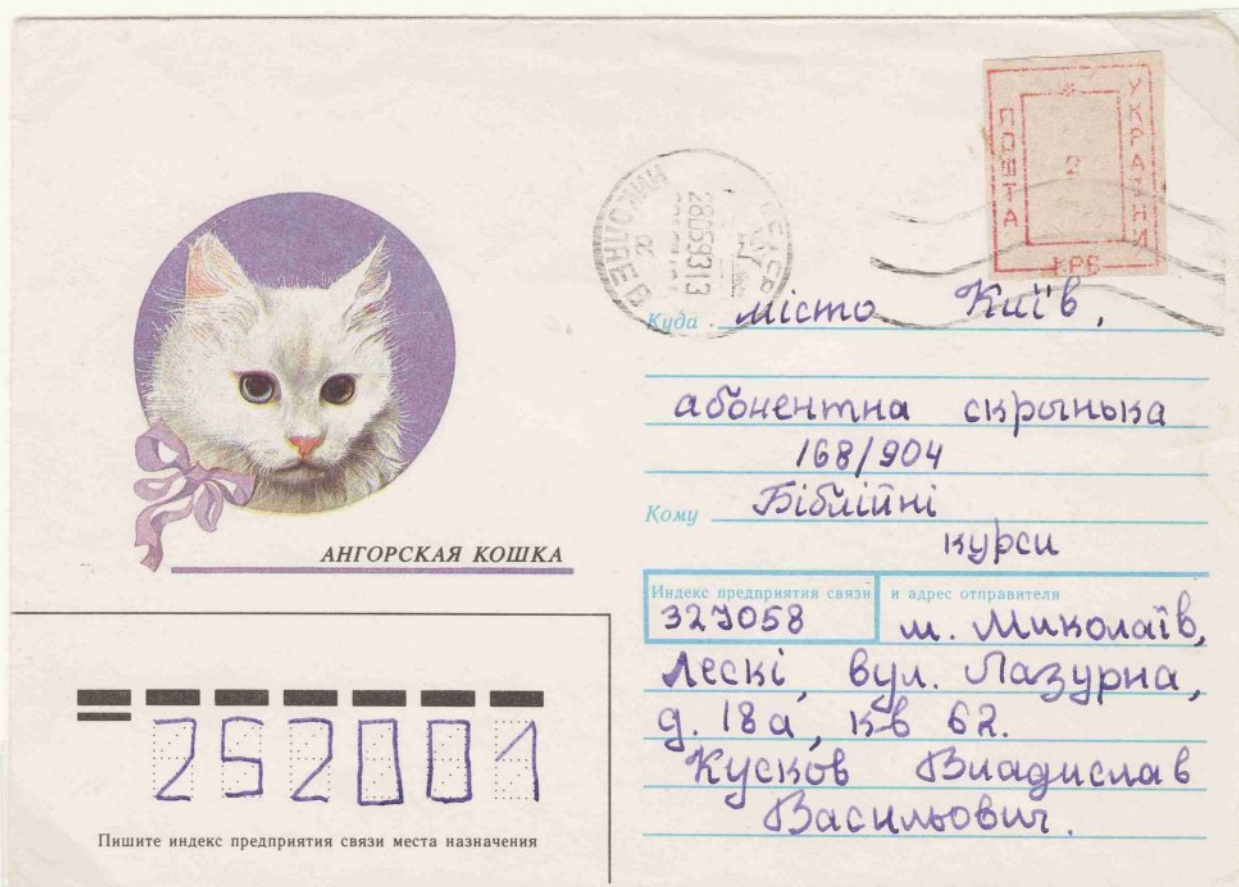 УКРАЇНИ
ПОШТА
2
КРБ
НИКОЛАЕВ
28059313
Куда місто Київ,
абонентна скринька
168/904
Кому Біблійні
курси
АНГОРСКАЯ КОШКА
Индекс предприятия связи и адрес отправителя
327058 м. Миколаїв,
Лескі, вул. Лазурна,
д. 18а, кв 62.
Кусков Владислав
Васильович.
252001
Пишите индекс предприятия связи места назначения